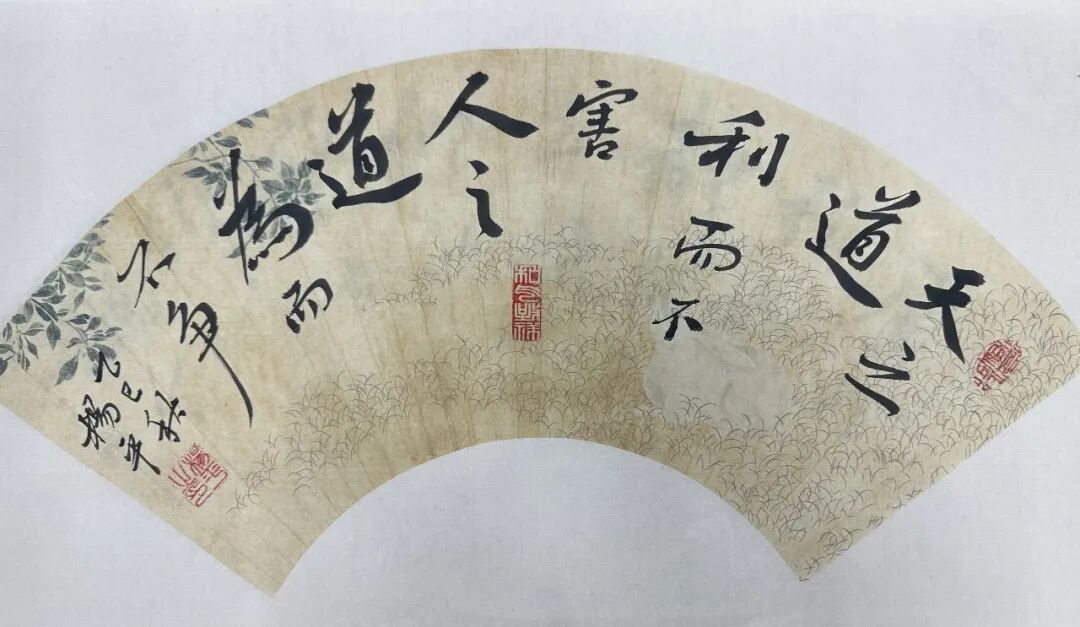 天之
道
利而不
害
人之
道
為而
不争
乙巳秋
楊平